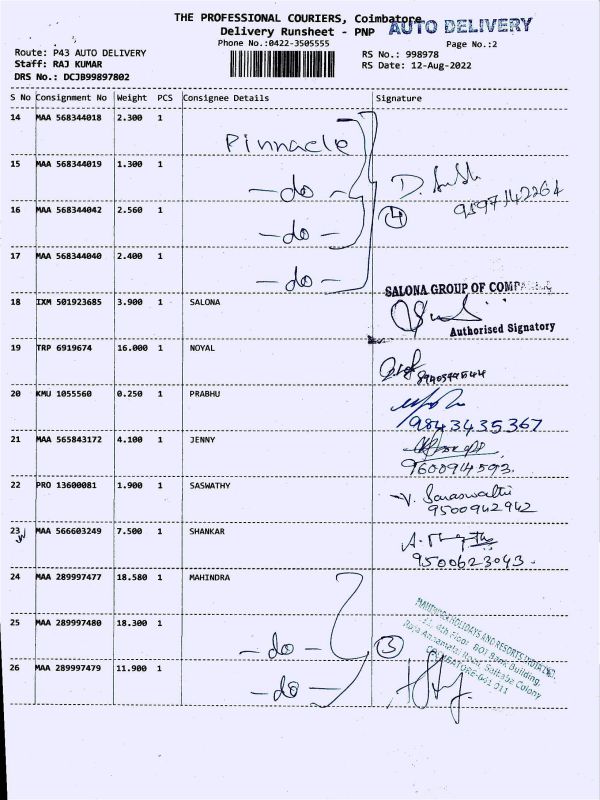 THE PROFESSIONAL COURIERS, Coimbatore
AUTO DELIVERY
Delivery Runsheet - PNP
Phone No.:0422-3505555
Page No.:2
Route: P43 AUTO DELIVERY
RS No.: 998978
Staff: RAJ KUMAR
RS Date: 12-Aug-2022
DRS No.: DCJB99897802
S No Consignment No Weight PCS Consignee Details Signature
14 MAA 568344018 2.300 1
Pinnacle
15 MAA 568344019 1.300 1
-do-
D.
9597142264
16 MAA 568344042 2.560 1
4
-do-
17 MAA 568344040 2.400 1
-do-
SALONA GROUP OF COMP
18 IXM 501923685 3.900 1 SALONA
Authorised Signatory
19 TRP 6919674 16.000 1 NOYAL
20 KMU 1055560 0.250 1 PRABHU
9843435367
21 MAA 565843172 4.100 1 JENNY
9600914593.
22 PRO 13600081 1.900 1 SASWATHY
V. Saraswathi
9500942942
23 MAA 566603249 7.500 1 SHANKAR
9500623043.
24 MAA 289997477 18.580 1 MAHINDRA
MAHINDRA HOLIDAYS AND RESORTS INDIA LTD.
25 MAA 289997480 18.300 1
4th Floor, BOI Bank Building,
-do-
3
Raja Annamalai Road, Saibaba Colony
COIMBATORE-641 011
26 MAA 289997479 11.900 1
-do-